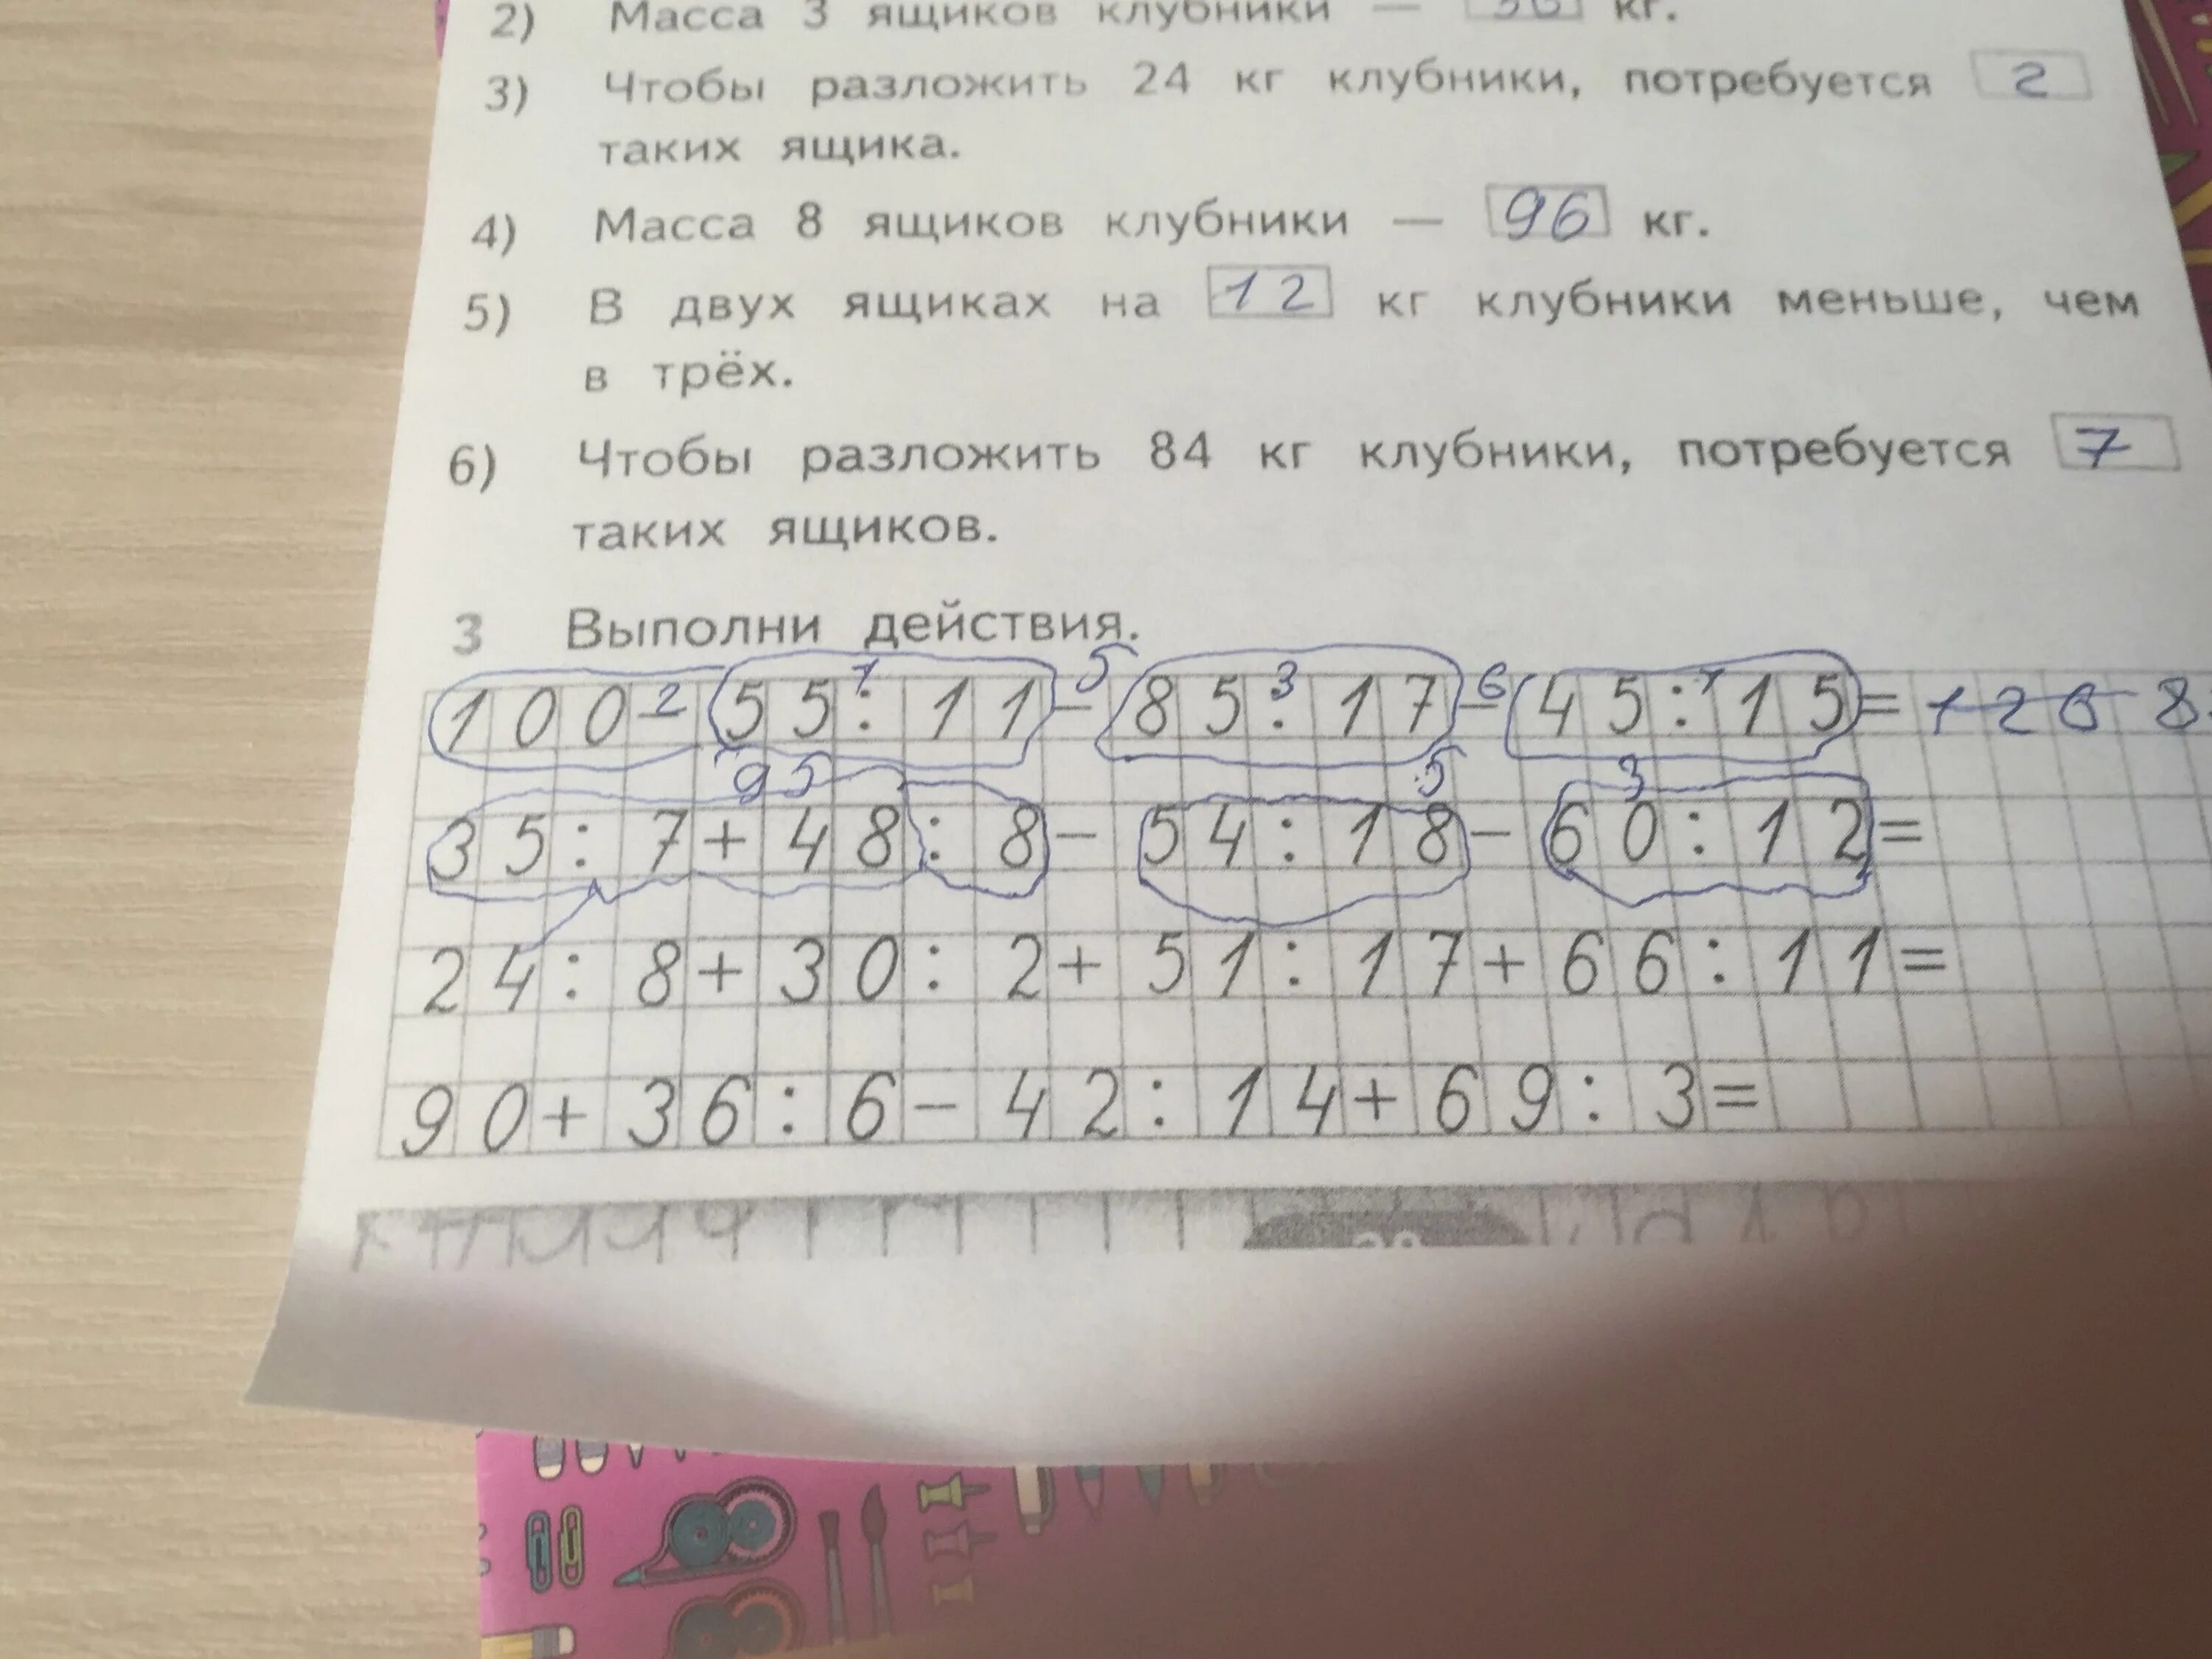 2) Масса 3 ящиков клубники — 36 кг.
3) Чтобы разложить 24 кг клубники, потребуется 2
таких ящика.
4) Масса 8 ящиков клубники — 96 кг.
5) В двух ящиках на 12 кг клубники меньше, чем
в трёх.
6) Чтобы разложить 84 кг клубники, потребуется 7
таких ящиков.
3 Выполни действия.
1 5 3 6 1
100-2 55:11-85:17-45:15= 1268
95 5 3
35:7+48:8-54:18-60:12=
24:8+30:2+51:17+66:11=
90+36:6-42:14+69:3=